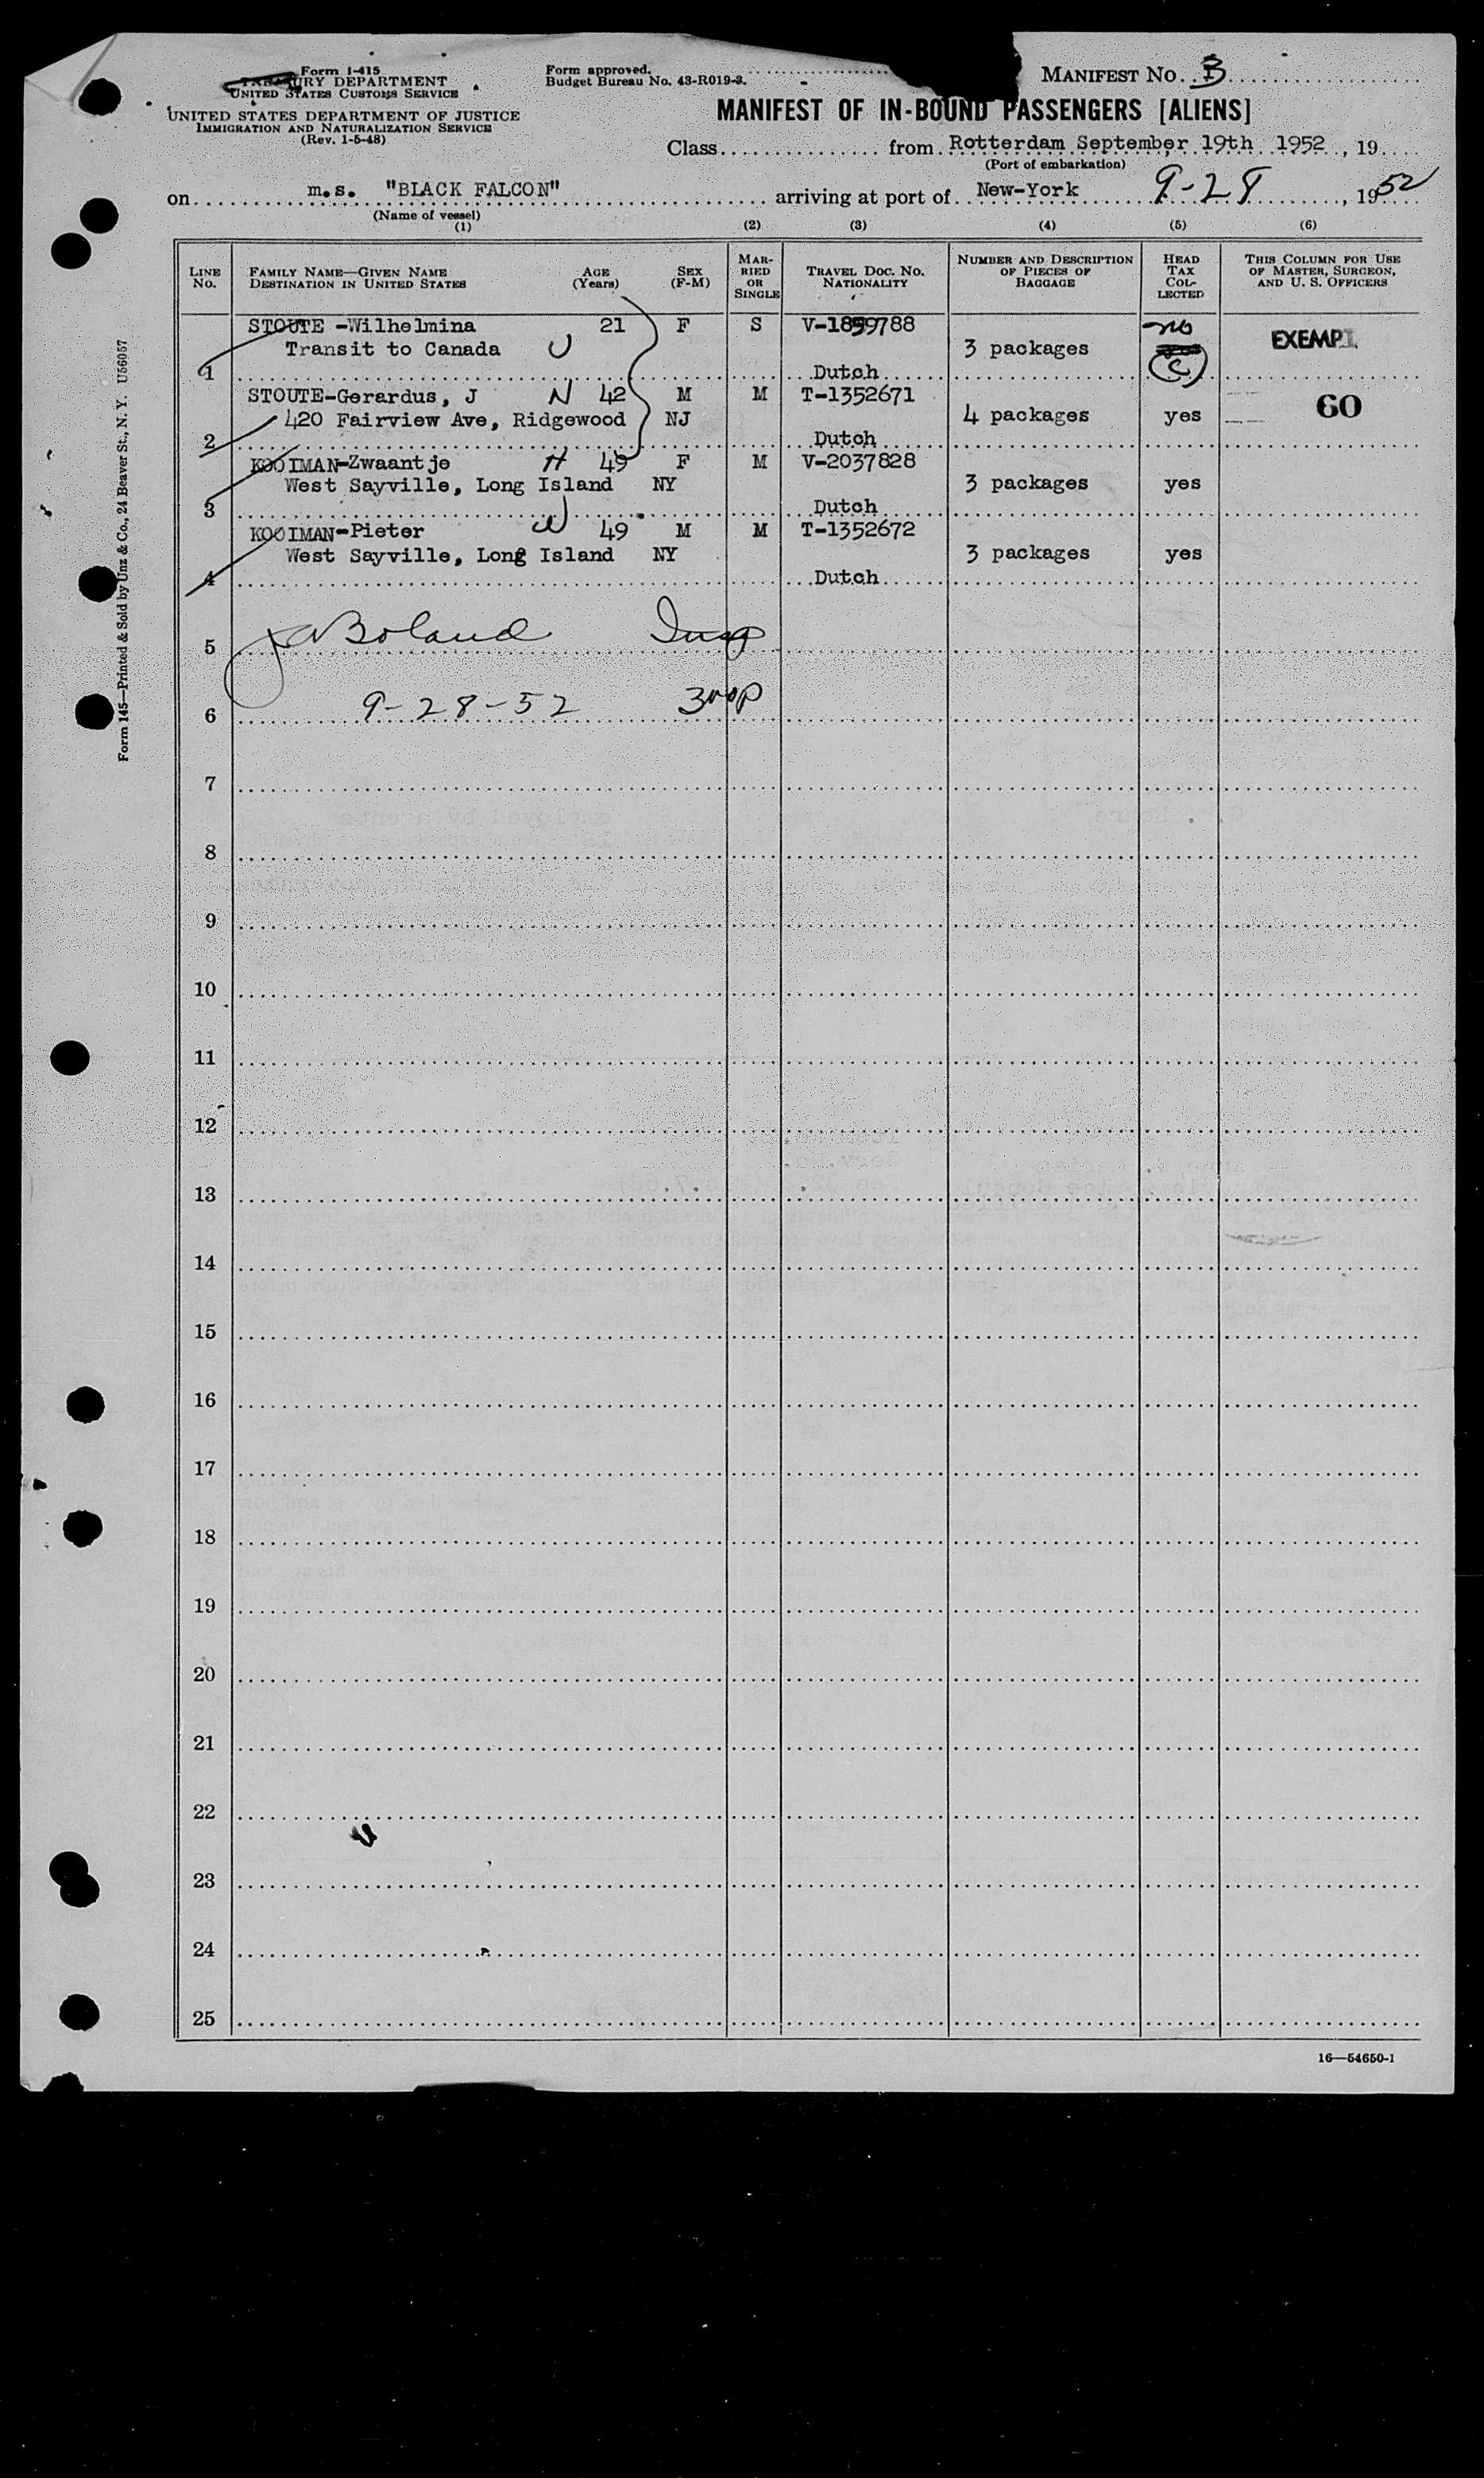 Form I-415
TREASURY DEPARTMENT
UNITED STATES CUSTOMS SERVICE
UNITED STATES DEPARTMENT OF JUSTICE
IMMIGRATION AND NATURALIZATION SERVICE
(Rev. 1-5-48)
Form approved.
Budget Bureau No. 43-R019-3.
MANIFEST NO. B
MANIFEST OF IN-BOUND PASSENGERS [ALIENS]
Class from Rotterdam September 19th 1952, 19
(Port of embarkation)
on m.s. "BLACK FALCON" arriving at port of New-York 9-28, 1952
(Name of vessel)
(1) (2) (3) (4) (5) (6)
LINE NO. FAMILY NAME—GIVEN NAME DESTINATION IN UNITED STATES AGE (Years) SEX (F-M) MARRIED OR SINGLE TRAVEL DOC. NO. NATIONALITY NUMBER AND DESCRIPTION OF PIECES OF BAGGAGE HEAD TAX COLLECTED THIS COLUMN FOR USE OF MASTER, SURGEON, AND U. S. OFFICERS
STOUTE -Wilhelmina 21 F S V-1859788 no
Transit to Canada U 3 packages EXEMPT
1 Dutch (C)
STOUTE-Gerardus, J N 42 M M T-1352671
420 Fairview Ave, Ridgewood NJ 4 packages yes 60
2 Dutch
KOOIMAN-Zwaantje H 49 F M V-2037828
West Sayville, Long Island NY 3 packages yes
3 Dutch
KOOIMAN-Pieter W 49 M M T-1352672
West Sayville, Long Island NY 3 packages yes
4 Dutch
5 Boland Insp
6 9-28-52 300p
7
8
9
10
11
12
13
14
15
16
17
18
19
20
21
22
23
24
25
16—54650-1
Form 145—Printed & Sold by Unz & Co., 24 Beaver St., N. Y. U56057